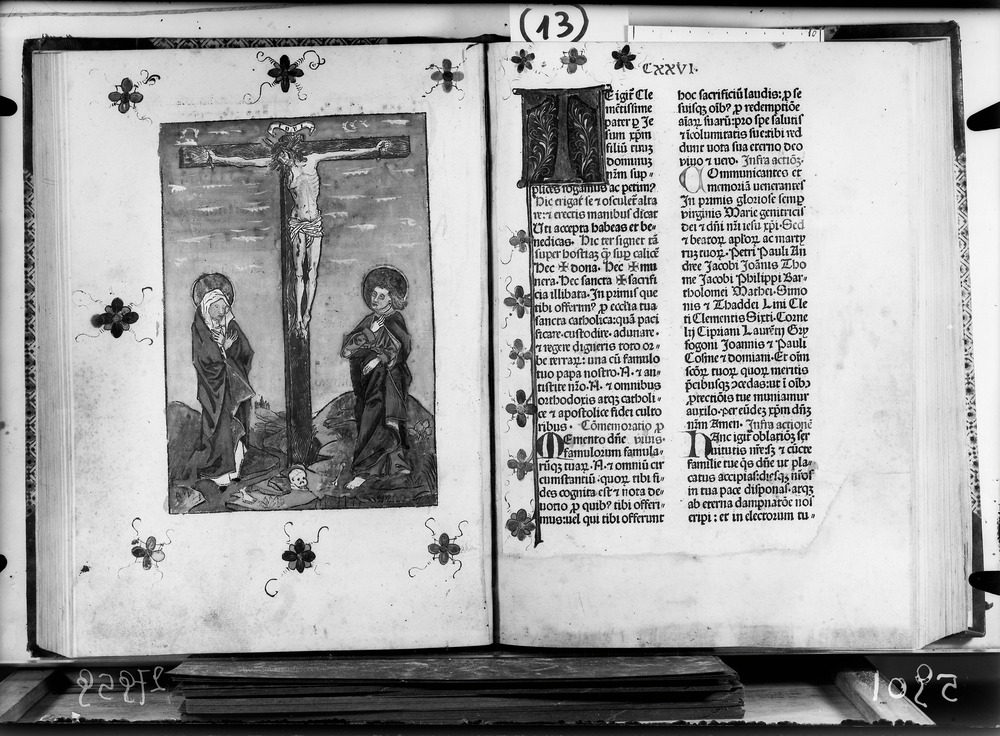 (13)
CXXVI.
TE igit᷑ Cle
mētissime
pater ꝑ Je
sum xp̄m
filiū tuuz
dominuz
nr̄m sup-
plices rogamus ac petim9
Hic erigat se ⁊ osculet᷑ alta
re: ⁊ erectis manibus dicat
Uti accepta habeas et be-
nedicas. Hic ter signet tā
super hostiaz ꝙ̄ sup calicē
Hec ✠ dona. Hec ✠ mu
nera. Hec sancta ✠ sacrifi
cia illibata. In primis que
tibi offerim9 ꝓ eccl̄ia tua
sancta catholica: quā paci
ficare. custodire. adunare.
⁊ regere digneris toto or-
be terraꝝ: una cū famulo
tuo papa nostro. N. ⁊ an-
tistite nr̄o. N. ⁊ omnibus
orthodoxis atqꝫ catholi-
ce ⁊ apostolice fidei culto
ribus. Cōmemoratio ꝓ
MEmento dn̄e vivis.
famulorum famula-
rūqꝫ tuaꝝ. N. ⁊ omniū cir
cumstantiū. quoꝝ tibi fi-
des cognita est ⁊ nota de-
votio ꝓ quib9 tibi offeri-
mus: uel qui tibi offerunt
hoc sacrificiū laudis: ꝓ se
suisqꝫ oīb9 ꝓ redemptiōe
aīaꝝ suaꝝ: pro spe salutis
⁊ īcolumitatis sue: tibi red
dunt uota sua eterno deo
vivo ⁊ uero. Infra actiōꝫ.
COmmunicantes et
memoriā uenerantes
In primis gloriose semꝑ
virginis Marie genitricis
dei ⁊ dn̄i nr̄i iesu xp̄i. Sed
⁊ beatoꝝ apl̄oꝝ ac marty
ruꝫ tuoꝝ. Petri Pauli An
dree Jacobi Joānis Tho
me Jacobi Philippi Bar-
tholomei Mathei. Simo
nis ⁊ Thaddei Lini Cle
ti Clementis Sixti. Corne
lij Cipriani Laurētij Gry
sogoni Joannis ⁊ Pauli
Cosme ⁊ domiani. Et oīm
scōꝝ tuoꝝ quoꝝ meritis
p̄cibusqꝫ ɔcedas: ut ī oīb9
ꝓtectiōis tue muniamur
auxilo. per eūdeꝫ xp̄m dn̄ꝫ
nr̄m Amen. Infra actionē
HAnc igit᷑ oblationeꝫ ser
vitutis nr̄e: sꝫ ⁊ cūcte
familie tue q̄s dn̄e ut pla-
catus accipias: diesqꝫ nr̄os
in tua pace disponas. atqꝫ
ab eterna dampnatōe nos
eripi: et in electorum tu-
27859
5901